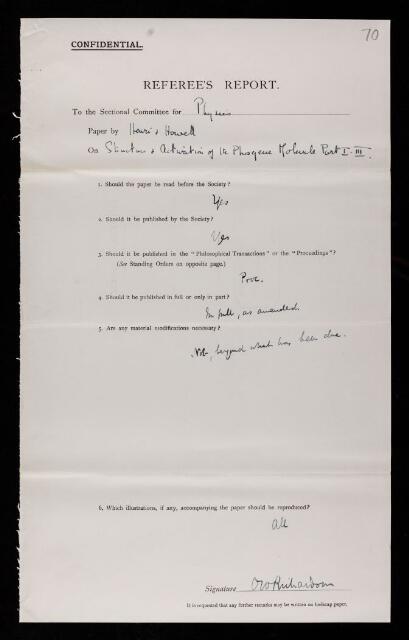 70
CONFIDENTIAL.
REFEREE'S REPORT.
To the Sectional Committee for Physics
Paper by Henri & Howell
On Structure & Activation of the Phosgene Molecule Part I - III.
1. Should the paper be read before the Society?
Yes
2. Should it be published by the Society?
Yes
3. Should it be published in the "Philosophical Transactions" or the "Proceedings"?
(See Standing Orders on opposite page.)
Proc.
4. Should it be published in full or only in part?
In full, as amended.
5. Are any material modifications necessary?
No, beyond what has been done.
6. Which illustrations, if any, accompanying the paper should be reproduced?
All
Signature OWRichardson
It is requested that any further remarks may be written on foolscap paper.